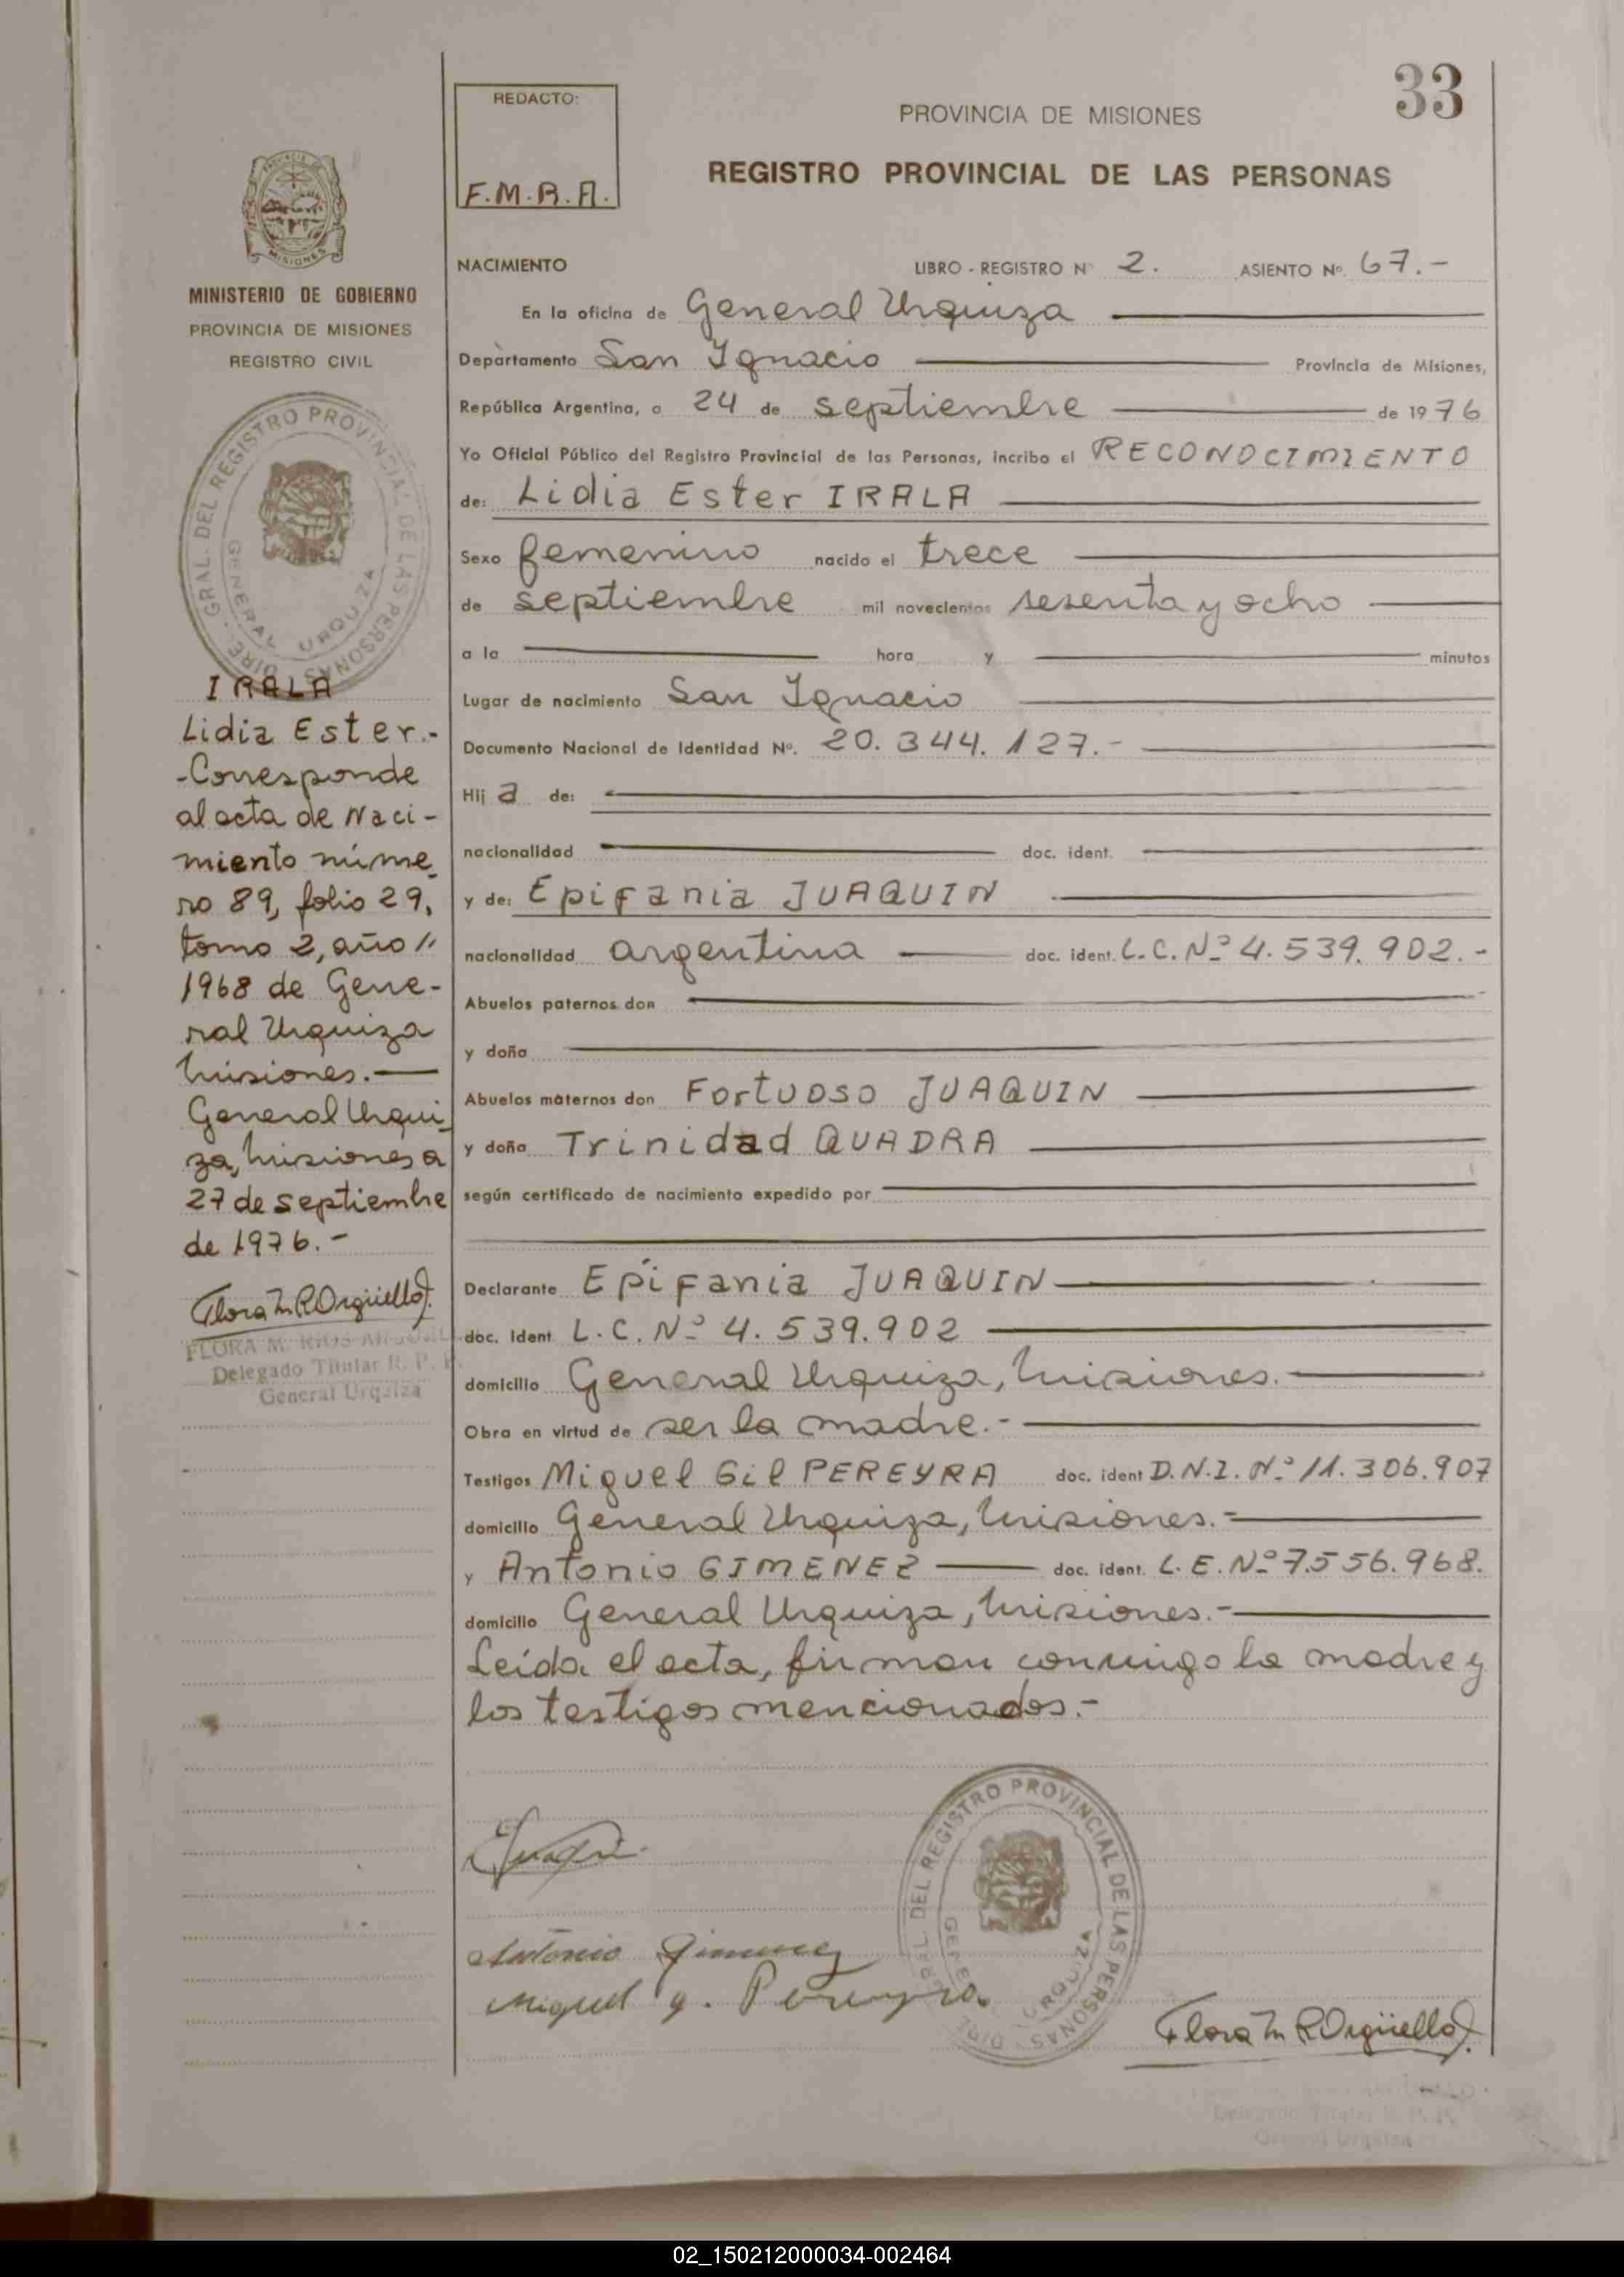 33
REDACTO:
F.M.R.A.
PROVINCIA DE MISIONES
REGISTRO PROVINCIAL DE LAS PERSONAS
MISIONES
MINISTERIO DE GOBIERNO
PROVINCIA DE MISIONES
REGISTRO CIVIL
DIRE. GRAL. DEL REGISTRO PROVINCIAL DE LAS PERSONAS
GENERAL URQUIZA
IRALA
Lidia Ester.-
-Corresponde
al acta de Naci-
miento núme
ro 89, folio 29,
tomo 2, año //
1968 de Gene-
ral Urquiza
Misiones.—
General Urqui
za, Misiones a
27 de septiembre
de 1976.-
Flora M R Argüello
FLORA M. RIOS ARGUELLO
Delegado Titular R. P. P.
General Urquiza
NACIMIENTO LIBRO - REGISTRO Nº 2. ASIENTO Nº. 67.-
En la oficina de General Urquiza
Departamento San Ignacio Provincia de Misiones,
República Argentina, a 24 de septiembre de 1976
Yo Oficial Público del Registro Provincial de las Personas, incribo el RECONOCIMIENTO
de: Lidia Ester IRALA
Sexo femenino nacido el trece
de septiembre mil novecientos sesenta y ocho
a la hora y minutos
Lugar de nacimiento San Ignacio
Documento Nacional de Identidad Nº. 20.344.127.-
Hij a de:
nacionalidad doc. ident.
y de: Epifania JUAQUIN
nacionalidad argentina doc. ident. L.C.Nº 4.539.902.-
Abuelos paternos don
y doña
Abuelos maternos don Fortuoso JUAQUIN
y doña Trinidad QUADRA
según certificado de nacimiento expedido por
Declarante Epifania JUAQUIN
doc. ident L.C.Nº 4.539.902
domicilio General Urquiza, Misiones.
Obra en virtud de ser la madre.-
Testigos Miguel Gil PEREYRA doc. ident D.N.I. Nº 11.306.907
domicilio General Urquiza, Misiones.-
y Antonio GIMENEZ doc. ident. L.E.Nº 7.556.968.
domicilio General Urquiza, Misiones.-
Leída el acta, firman conmigo la madre y
los testigos mencionados.-
Antonio Gimenez
Miguel g. Pereyra
DIRE. GRAL. DEL REGISTRO PROVINCIAL DE LAS PERSONAS
GENERAL URQUIZA
Flora M R Argüello
Delegado Titular R. P. P.
General Urquiza
02_150212000034-002464